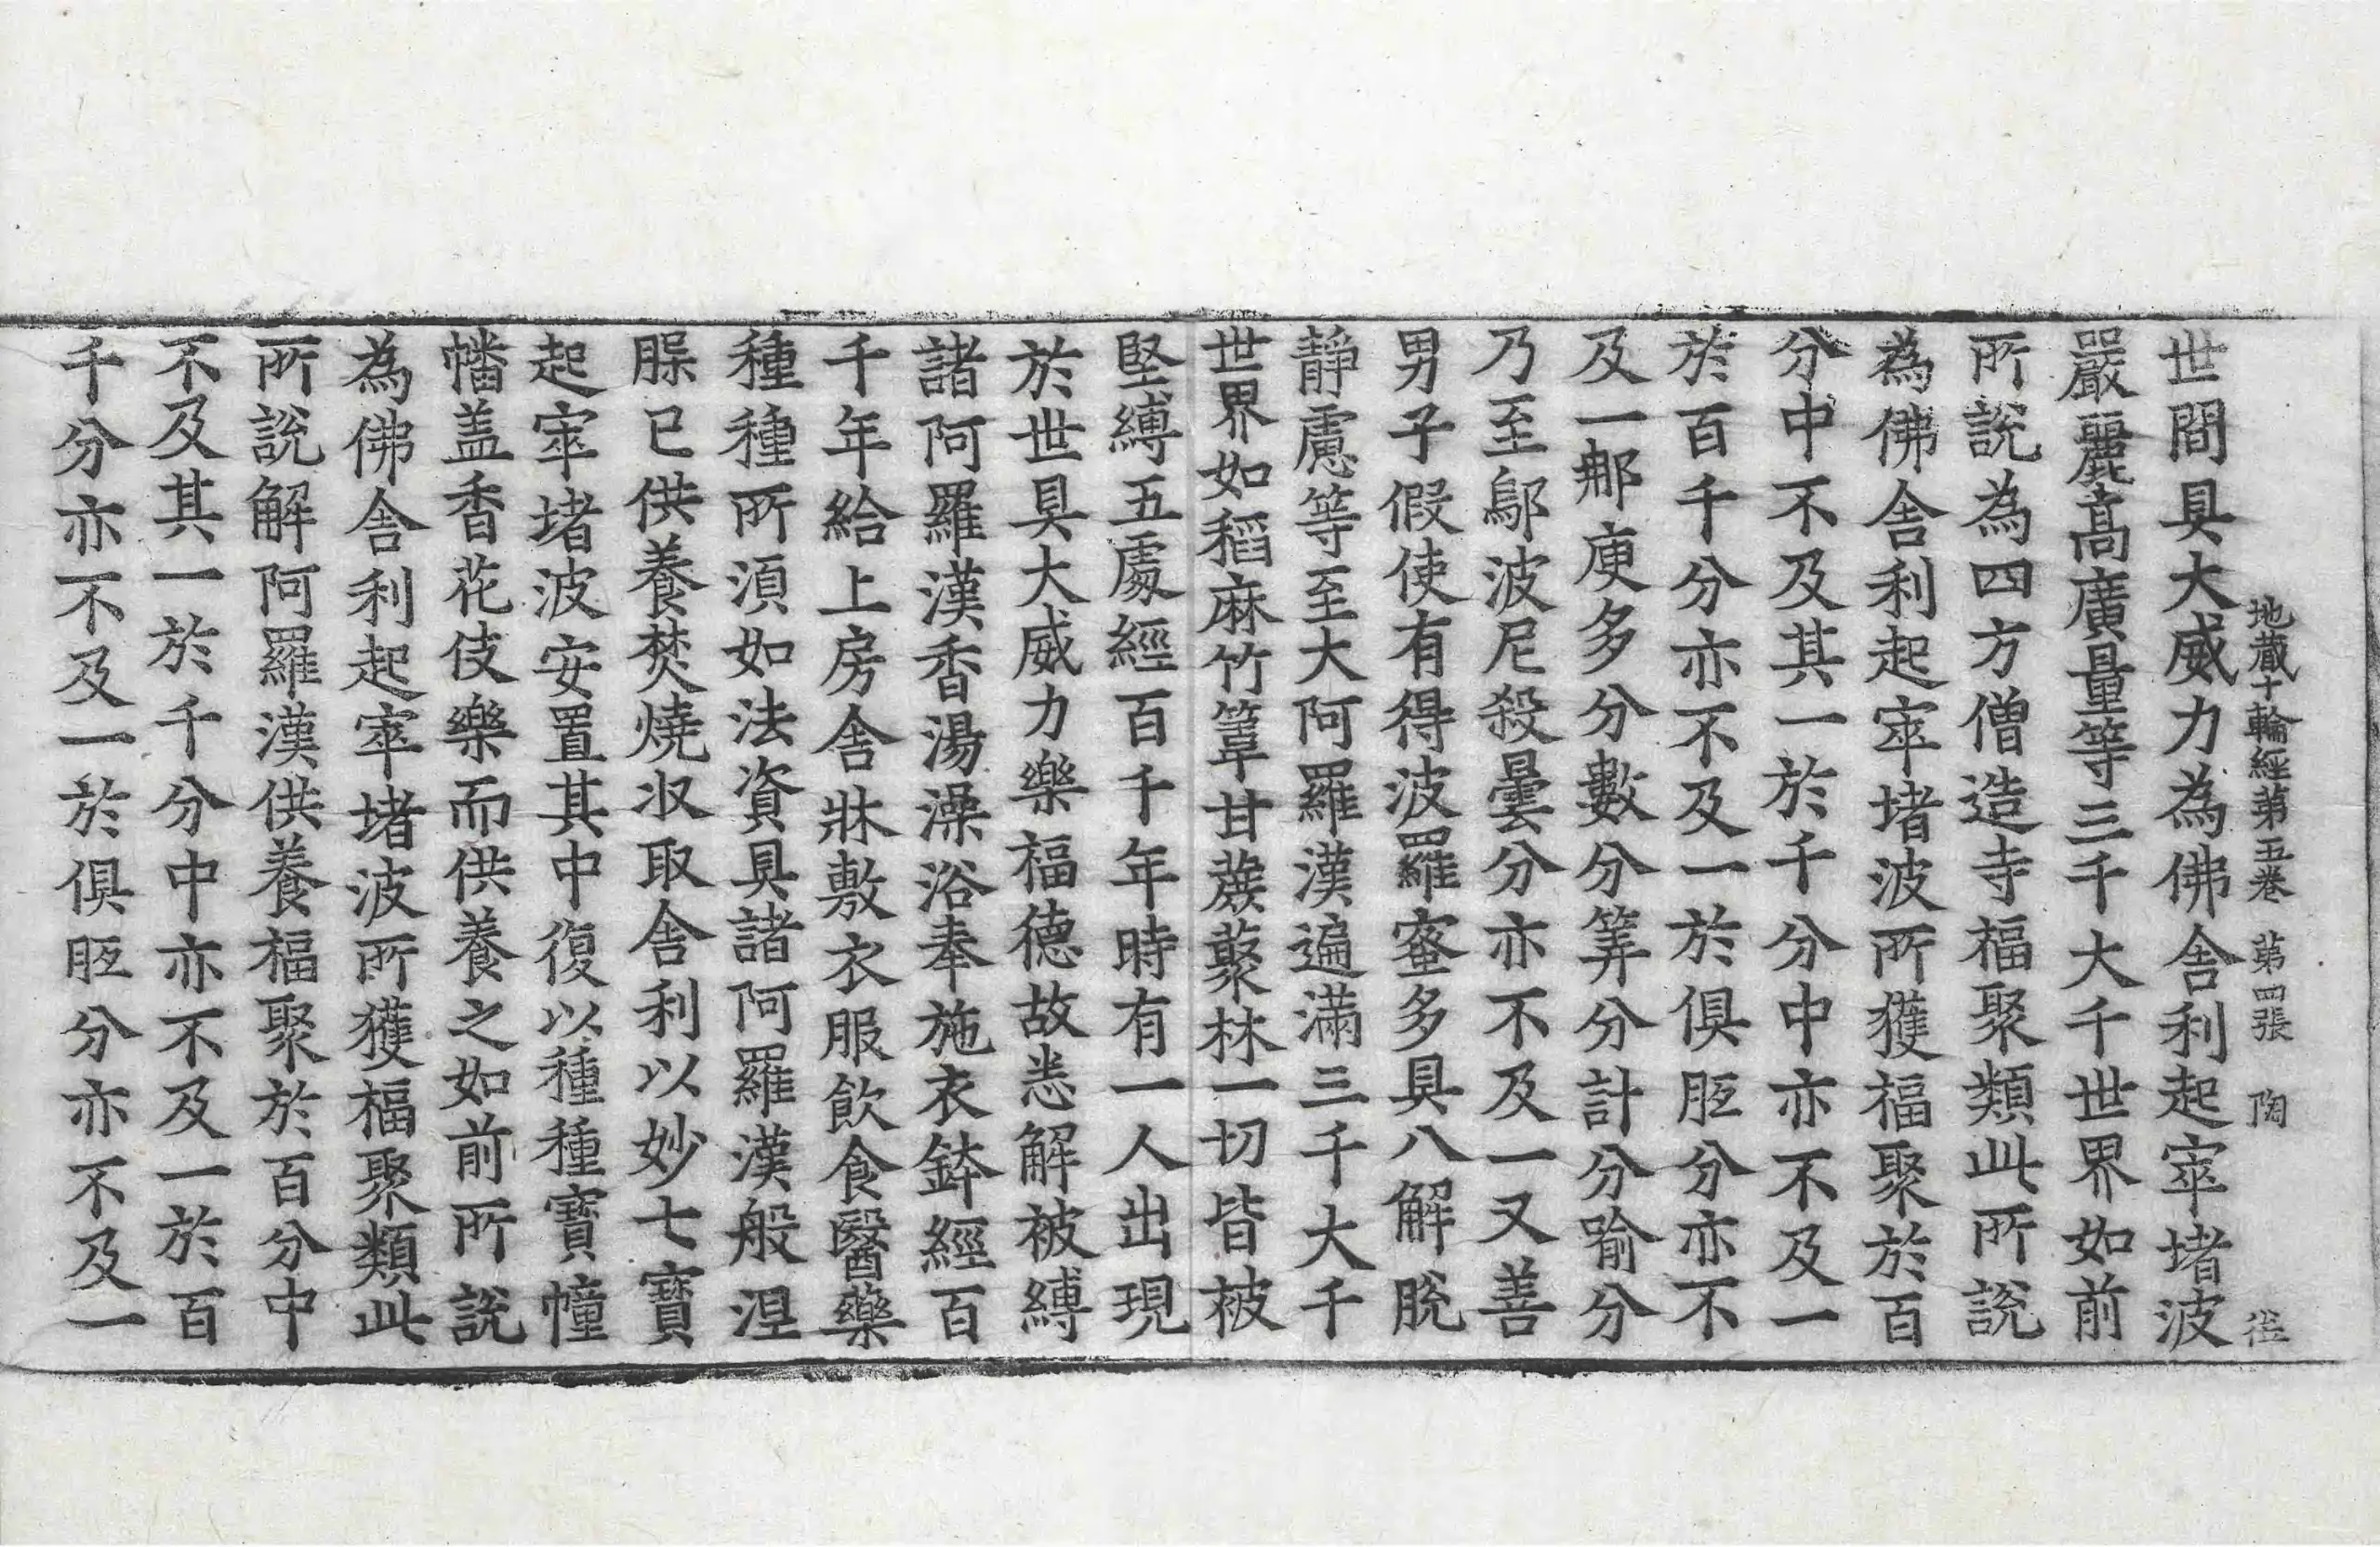 地藏十輪經第五卷 第四張 陶
世間具大威力為佛舍利起窣堵波
嚴麗高廣量等三千大千世界如前
所說為四方僧造寺福聚類此所說
為佛舍利起窣堵波所獲福聚於百
分中不及其一於千分中亦不及一
於百千分亦不及一於俱胝分亦不
及一那庾多分數分筭分計分喻分
乃至鄔波尼殺曇分亦不及一又善
男子假使有得波羅蜜多具八解脫
靜慮等至大阿羅漢遍滿三千大千
世界如稻麻竹葦甘蔗䕺林一切皆被
堅縛五處經百千年時有一人出現
於世具大威力樂福德故悉解被縛
諸阿羅漢香湯澡浴奉施衣鉢經百
千年給上房舍牀敷衣服飲食醫藥
種種所須如法資具諸阿羅漢般涅
𦝫已供養焚燒收取舍利以妙七寶
起窣堵波安置其中復以種種寶幢
幡盖香花伎樂而供養之如前所說
為佛舍利起窣堵波所獲福聚類此
所說解阿羅漢供養福聚於百分中
不及其一於千分中亦不及一於百
千分亦不及一於俱胝分亦不及一